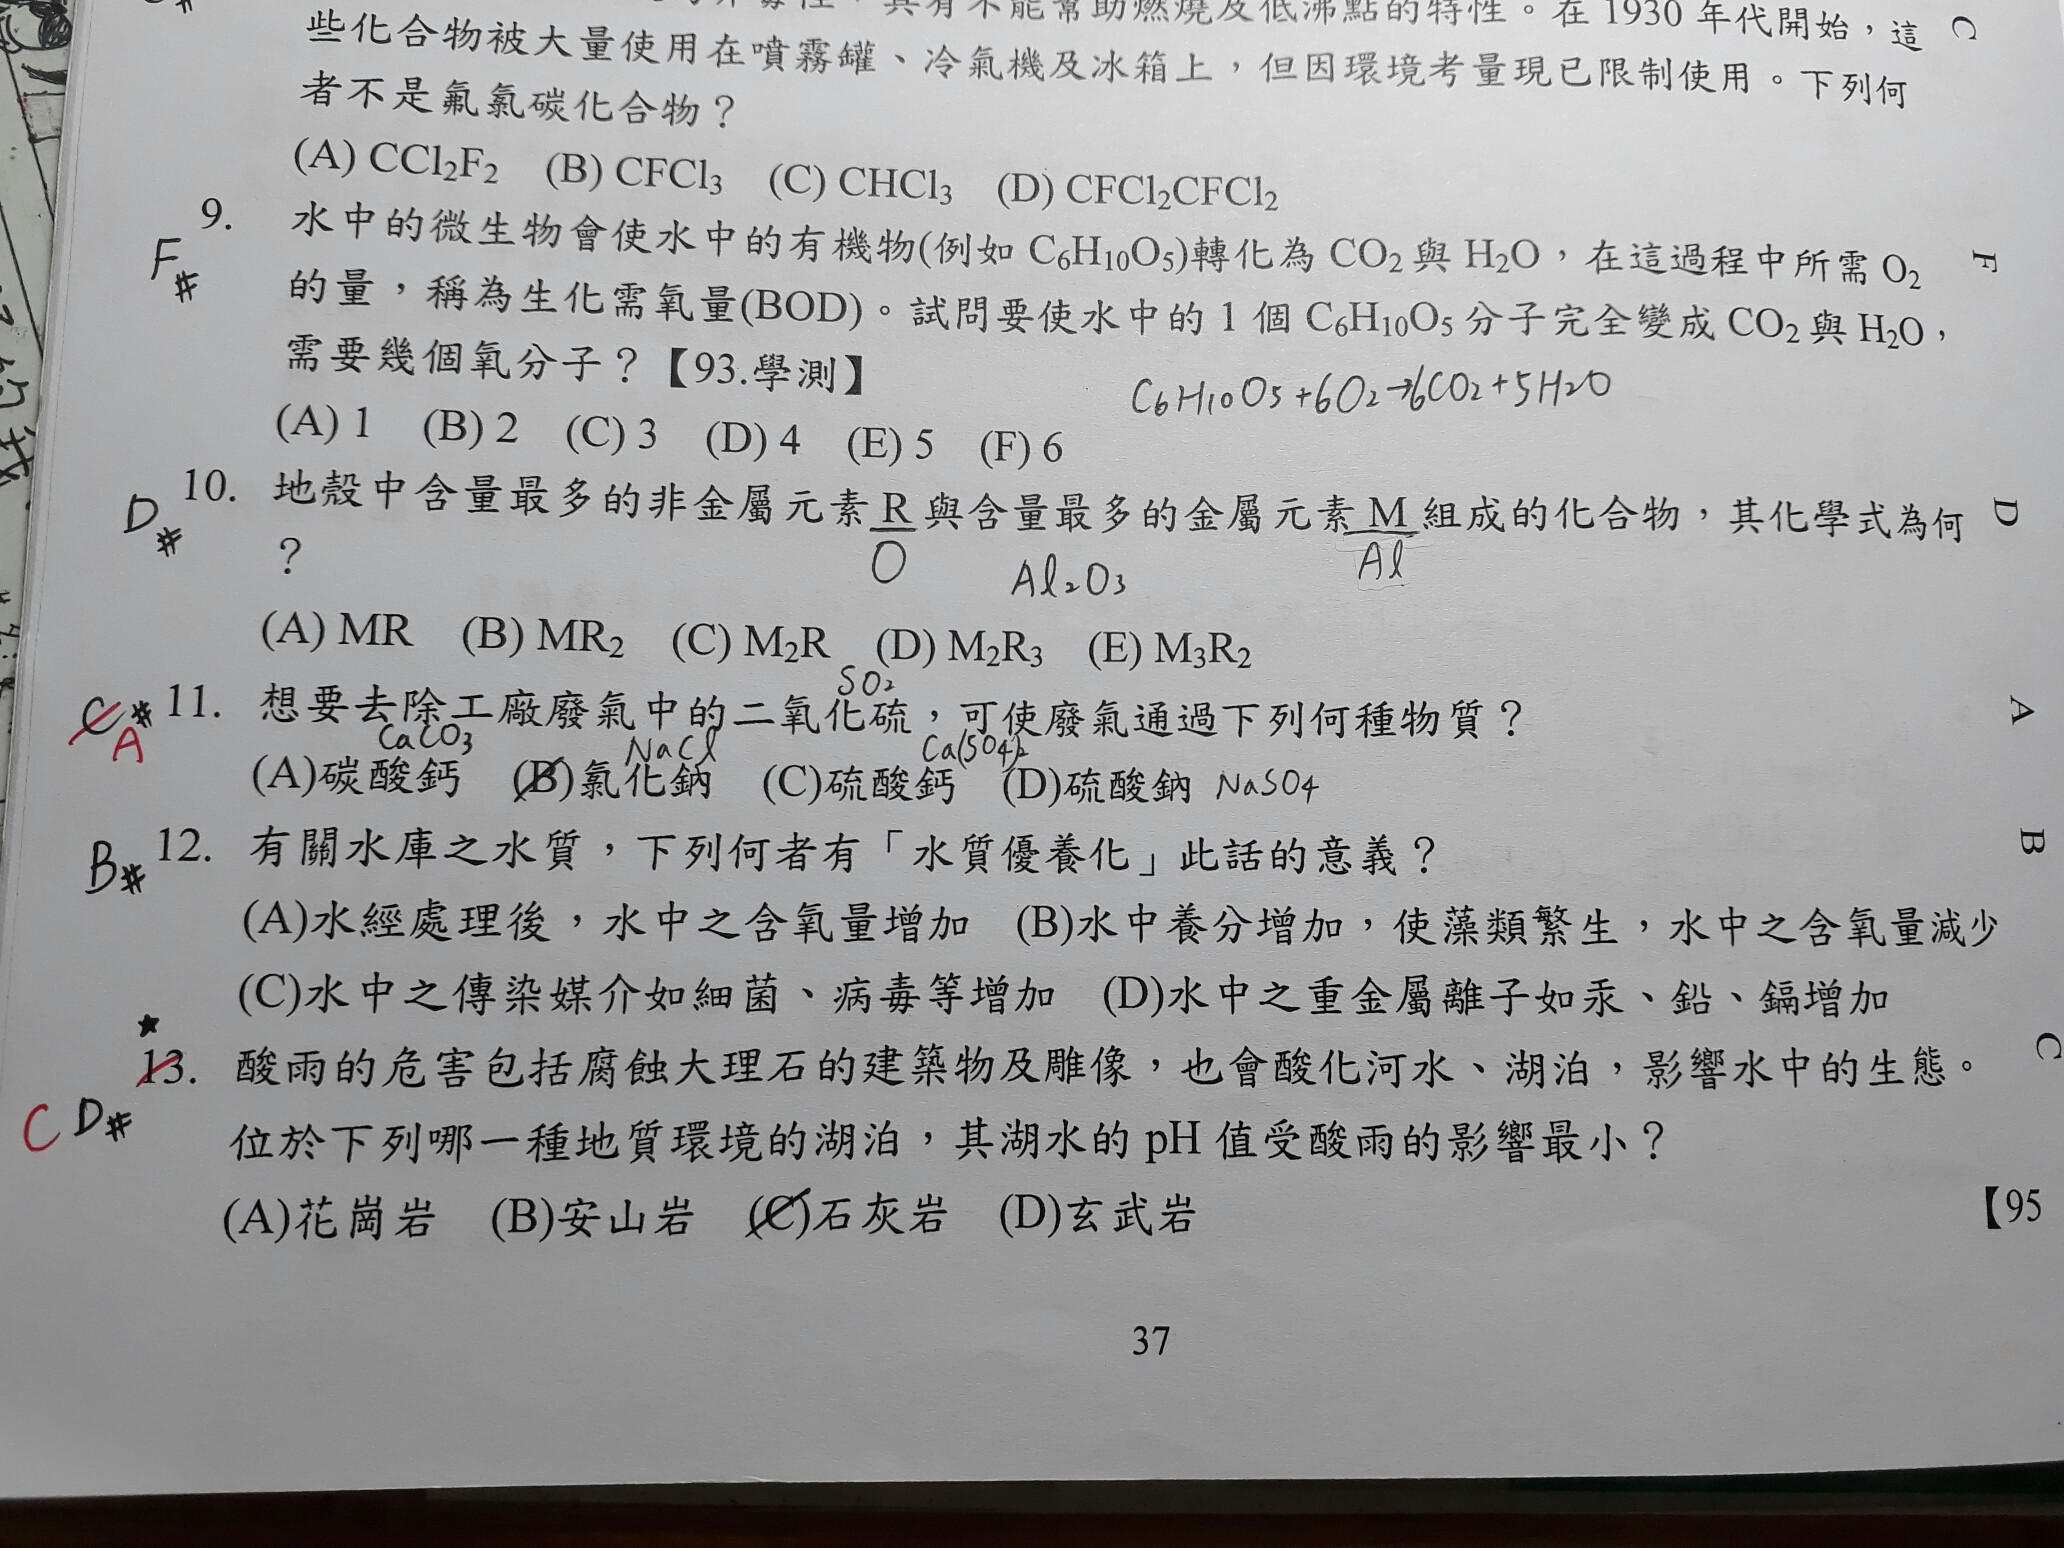 性,具有不能幫助燃燒及低沸點的特性。在 1930 年代開始,這
些化合物被大量使用在噴霧罐、冷氣機及冰箱上,但因環境考量現已限制使用。下列何
者不是氟氯碳化合物?
C
(A) CCl₂F₂ (B) CFCl₃ (C) CHCl₃ (D) CFCl₂CFCl₂
F#
9. 水中的微生物會使水中的有機物(例如 C₆H₁₀O₅)轉化為 CO₂ 與 H₂O,在這過程中所需 O₂
F
的量,稱為生化需氧量(BOD)。試問要使水中的 1 個 C₆H₁₀O₅ 分子完全變成 CO₂ 與 H₂O,
需要幾個氧分子?【93.學測】
C₆H₁₀O₅+6O₂→6CO₂+5H₂O
(A) 1 (B) 2 (C) 3 (D) 4 (E) 5 (F) 6
D#
10. 地殼中含量最多的非金屬元素 R 與含量最多的金屬元素 M 組成的化合物,其化學式為何
D
?
O Al₂O₃ Al
(A) MR (B) MR₂ (C) M₂R (D) M₂R₃ (E) M₃R₂
SO₂
C#
A
11. 想要去除工廠廢氣中的二氧化硫,可使廢氣通過下列何種物質?
A
CaCO₃ NaCl Ca(SO₄)₂
(A)碳酸鈣 (B)氯化鈉 (C)硫酸鈣 (D)硫酸鈉 NaSO₄
B#
12. 有關水庫之水質,下列何者有「水質優養化」此話的意義?
B
(A)水經處理後,水中之含氧量增加 (B)水中養分增加,使藻類繁生,水中之含氧量減少
(C)水中之傳染媒介如細菌、病毒等增加 (D)水中之重金屬離子如汞、鉛、鎘增加
★
13. 酸雨的危害包括腐蝕大理石的建築物及雕像,也會酸化河水、湖泊,影響水中的生態。
C
C D#
位於下列哪一種地質環境的湖泊,其湖水的 pH 值受酸雨的影響最小?
(A)花崗岩 (B)安山岩 (C)石灰岩 (D)玄武岩
【95
37